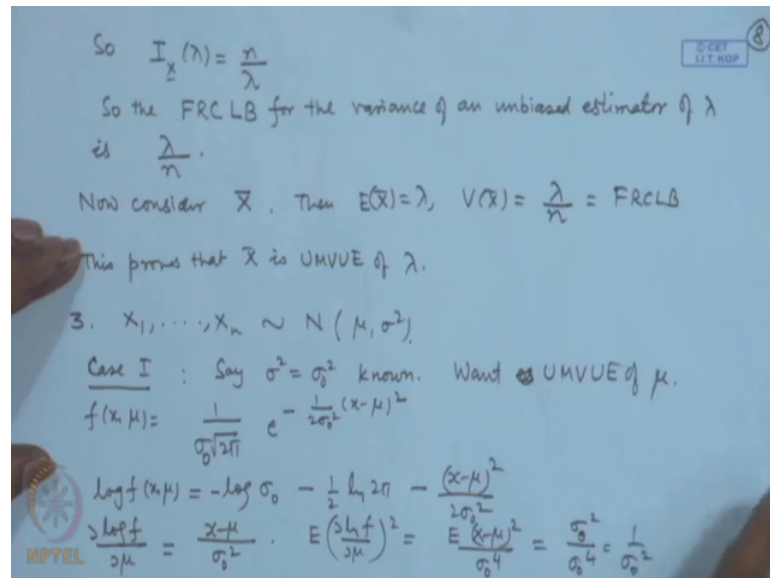 8
© CET
I.I.T. KGP
So I_X(λ) = n/λ
So the FRCLB for the variance of an unbiased estimator of λ
is λ/n.
Now consider X̄. Then E(X̄) = λ, V(X̄) = λ/n = FRCLB
This proves that X̄ is UMVUE of λ.
3. X₁, ..., Xₙ ~ N(μ, σ²).
Case I : Say σ² = σ₀² known. Want UMVUE of μ.
f(x, μ) = 1/(σ₀√2π) e^{- 1/(2σ₀²) (x-μ)²}
log f(x, μ) = -log σ₀ - 1/2 ln 2π - (x-μ)²/2σ₀²
∂ log f/∂μ = (x-μ)/σ₀² . E(∂ ln f/∂μ)² = E(x-μ)²/σ₀⁴ = σ₀²/σ₀⁴ = 1/σ₀²
NPTEL